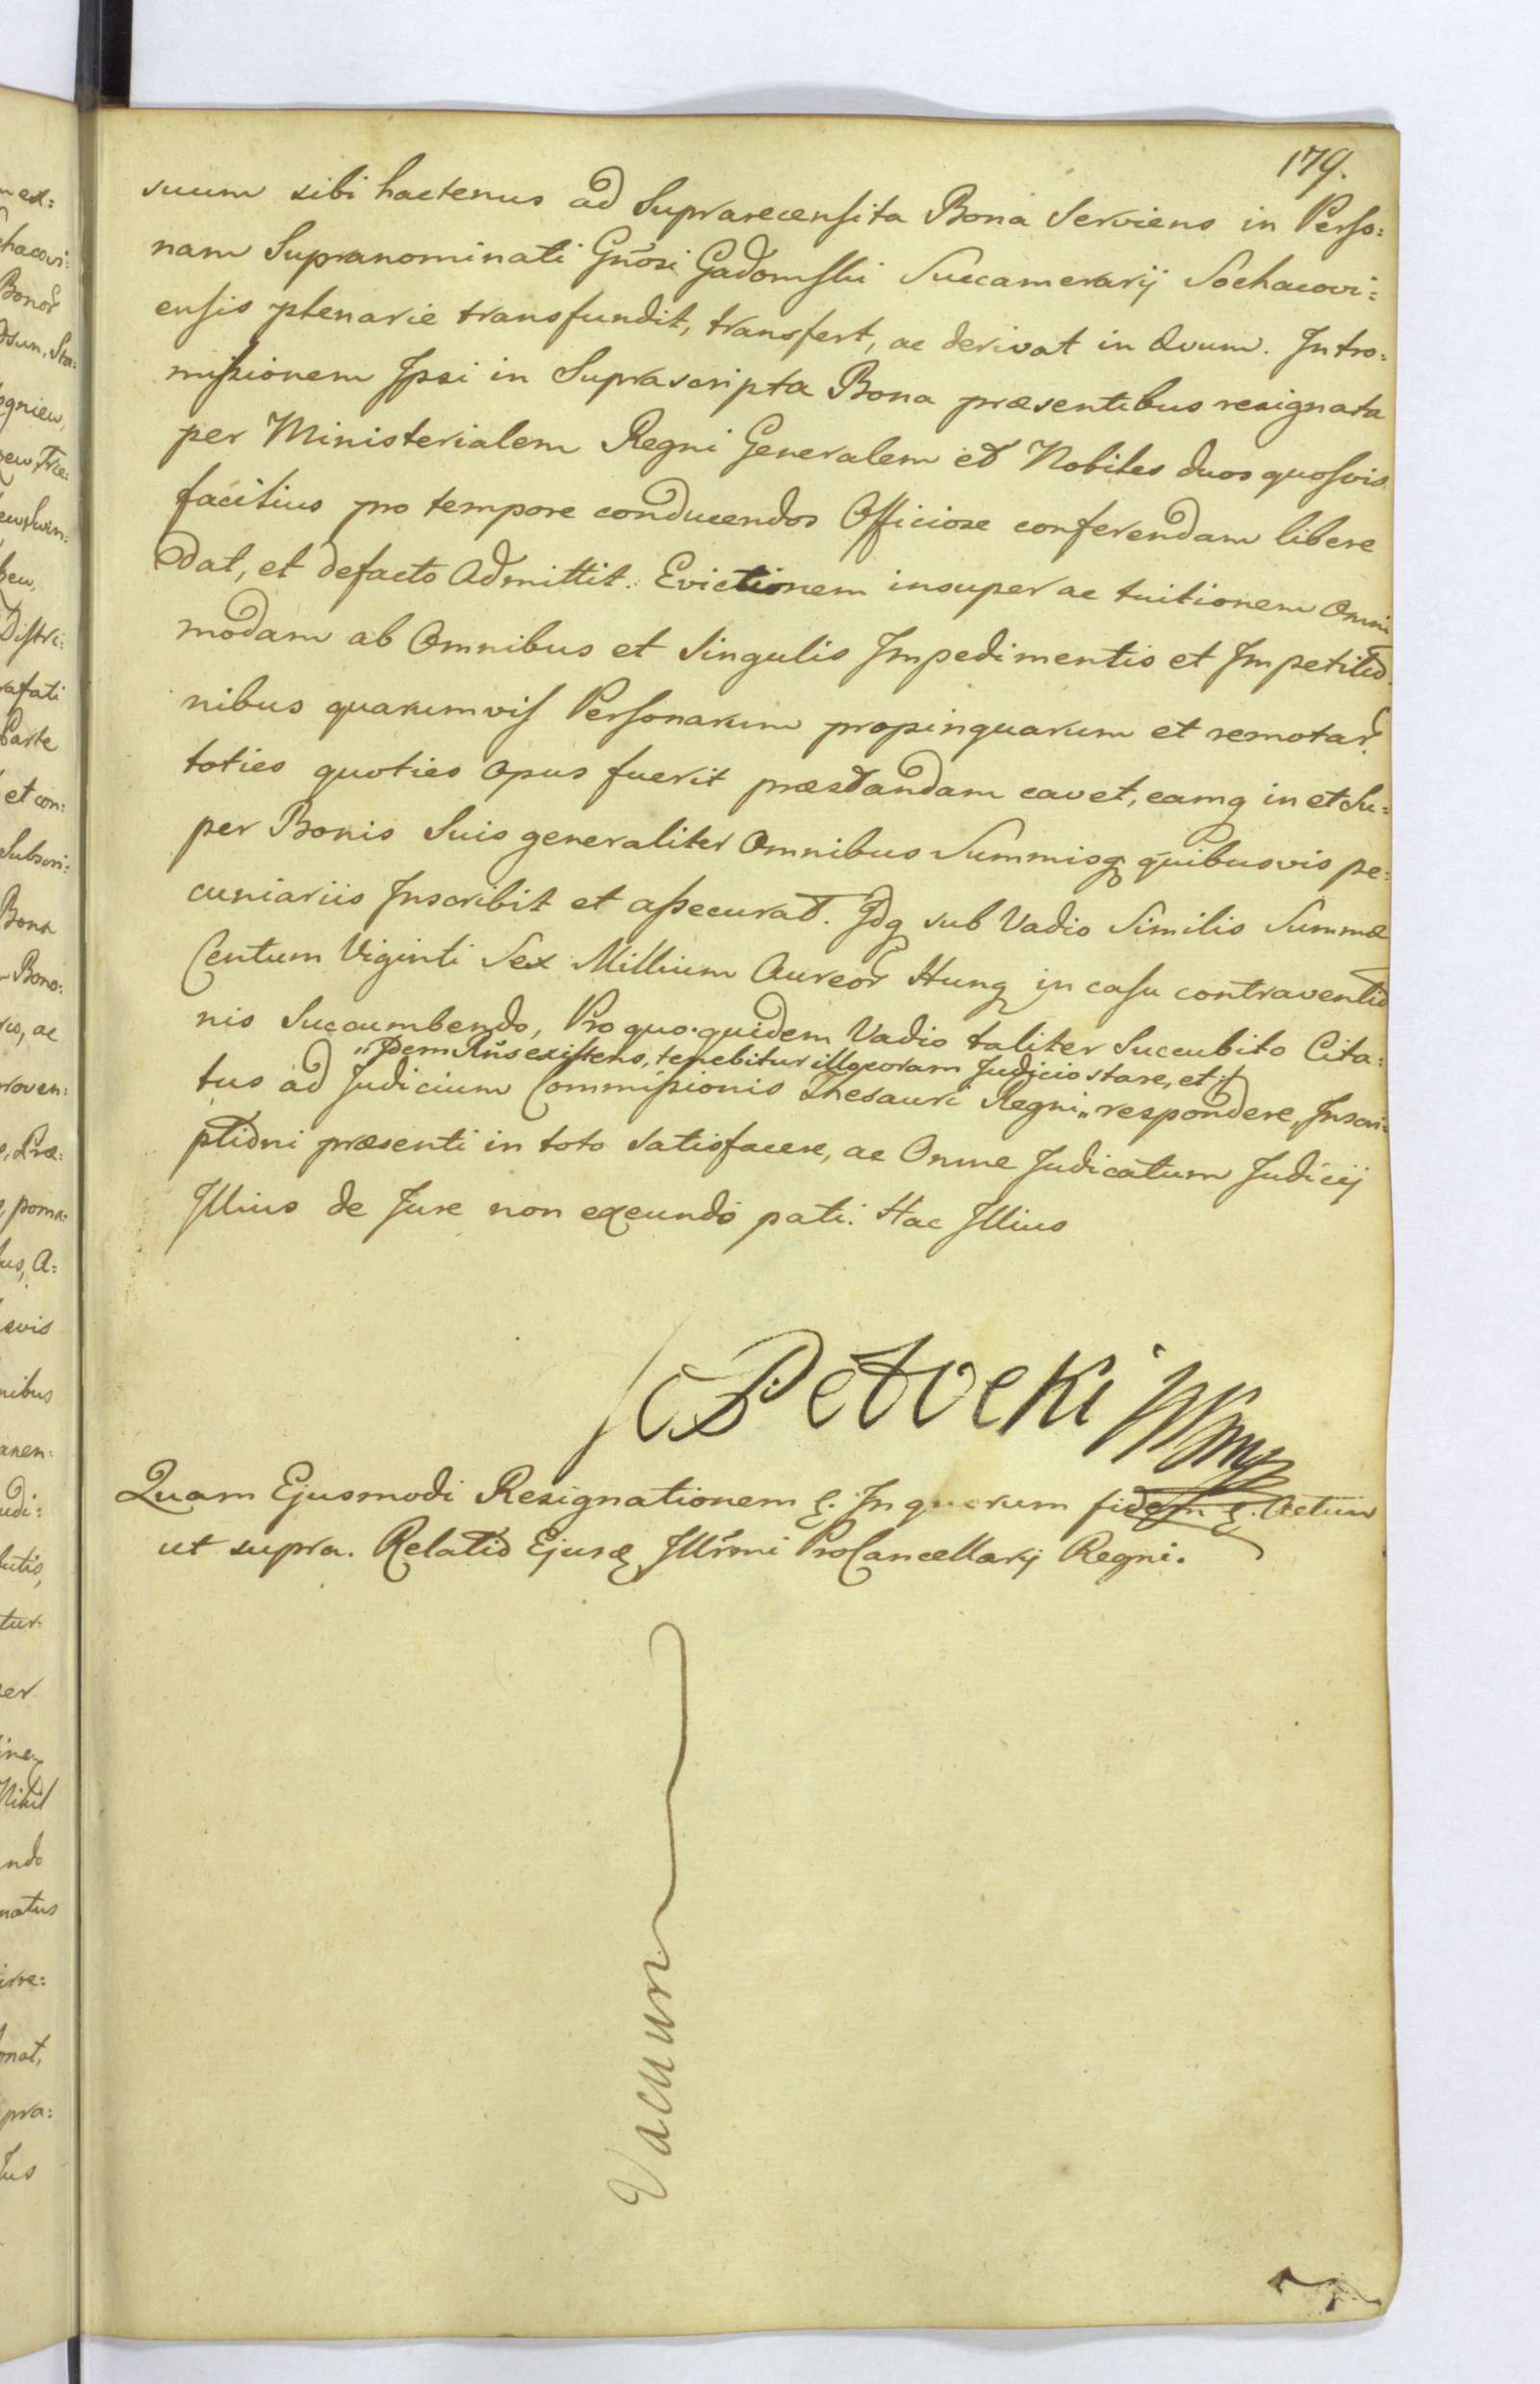 179.
suum sibi hactenus ad Suprarecensita Bona Serviens in Perso:
nam Supranominati Gnõsi Gadomski Succamerarij Sochacovi:
ensis plenarie transfundit, transfert, ac derivat in Ævum. Intro:
missionem Ipsi in Suprascripta Bona præsentibus resignata
per Ministerialem Regni Generalem et Nobiles duos quosvis
facilius pro tempore conducendos Officiose conferendam libere
dat, et defacto Admittit. Evictionem insuper ac tuitionem Omni
modam ab Omnibus et Singulis Impedimentis et Impetitio
nibus quarumvis Personarum propinquarum et remotar
toties quoties Opus fuerit præstandam cavet, eamq in et Su:
per Bonis Suis generaliter Omnibus Summisq quibusvis pe:
cuniariis Inscribit et assecurat. Idq sub Vadio Similis Summæ
Centum Viginti Sex Millium Aureor Hung in casu contraventio
nis Succumbendo, Pro quo quidem Vadio taliter Succubito Cita:
"Idem Rñs existens, tenebitur illoq coram Judicio stare, et
tus ad Judicium Commissionis Thesauri Regni " respondere, Inscri:
ptioni præsenti in toto satisfacere, ac Omne Judicatum Judicij
Illius de Jure non exeundo pati. Hac Illius
Quam Ejusmodi Resignationem &. In quorum fidem &. Actum
ut supra. Relatio Ejusd Illrmi ProCancellarij Regni.
Vacuum
ex:
hacovi:
Bonor
gniew,
Distri:
rafati
Parte
et con:
Subscri:
Bona
Bono:
ac
roven:
Præ:
A:
nibus
udi:
tur
er
Nihil
ndo
natus
pra:
Jus